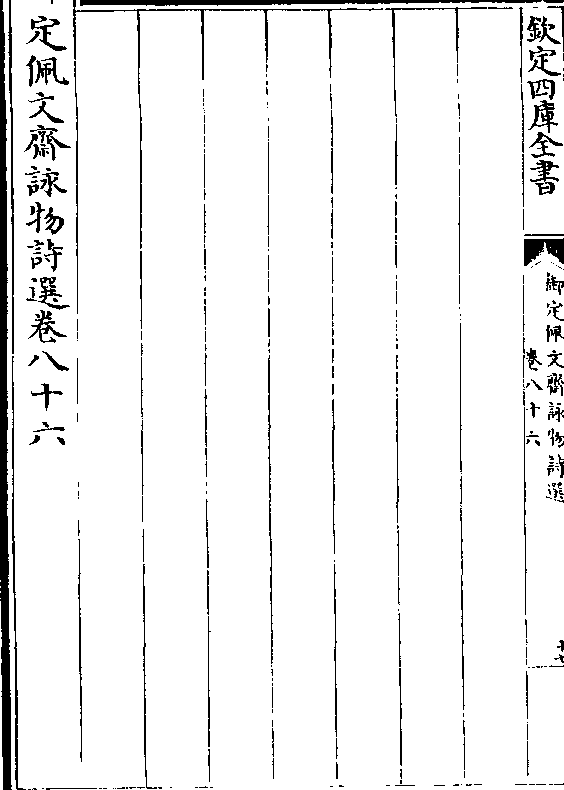 欽定四庫全書
御定佩文齋詠物詩選
卷八十六
十七
定佩文齋詠物詩選卷八十六